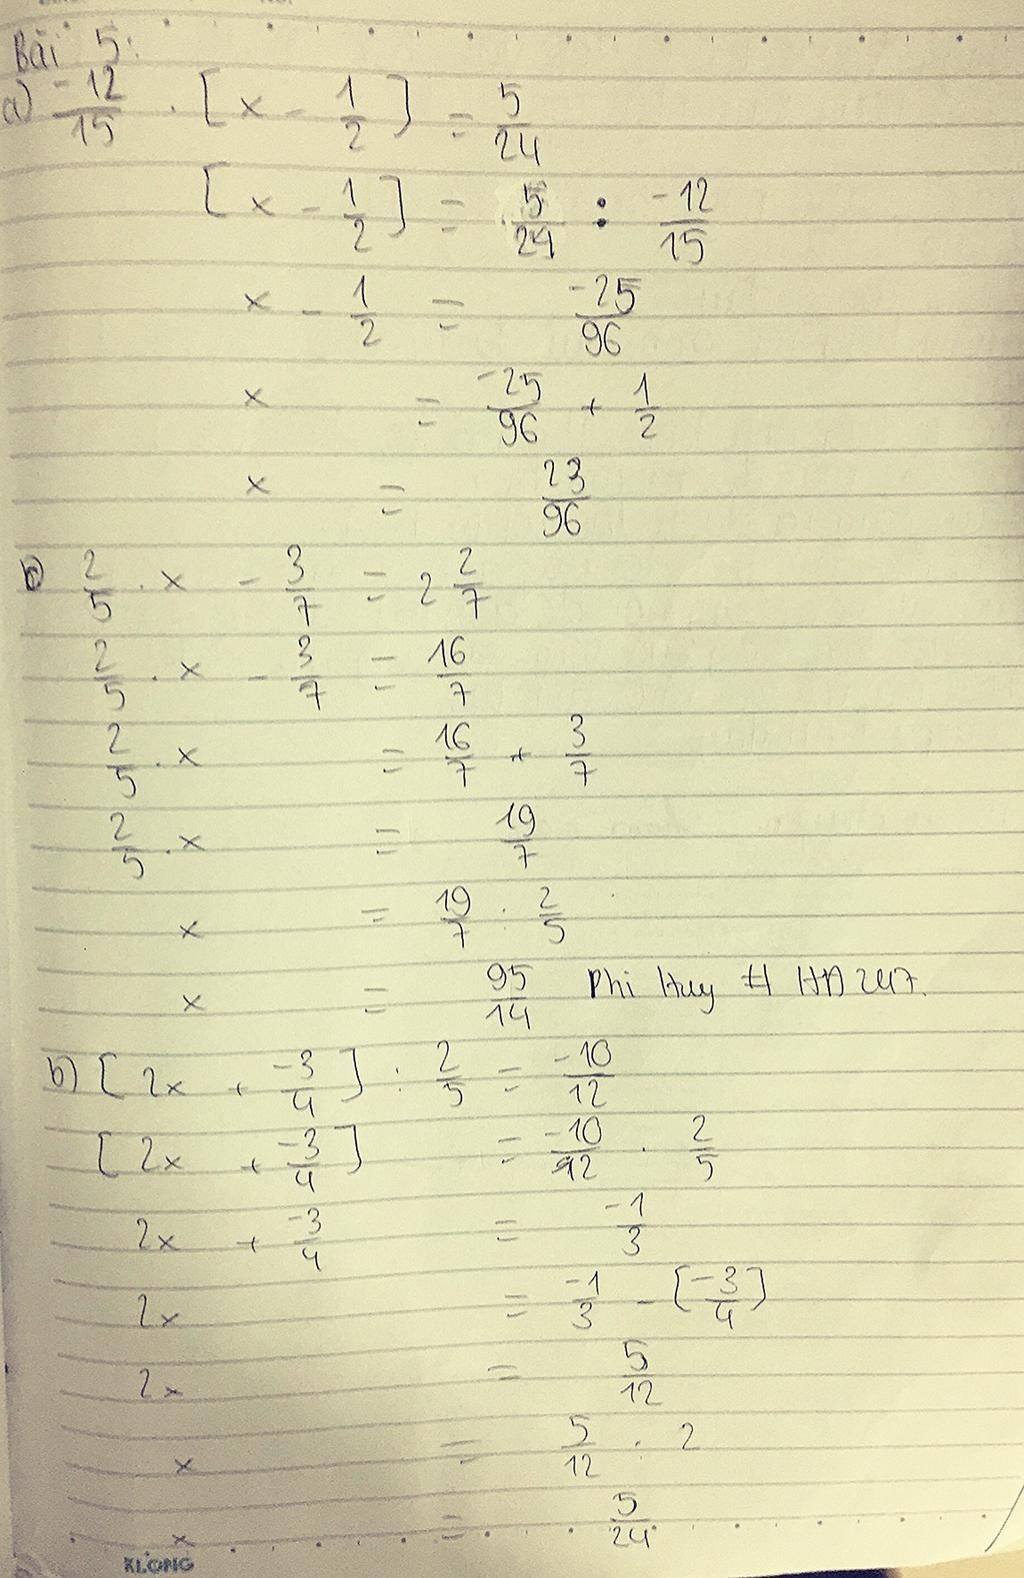 Bài 5:
a) -12/15 . [x - 1/2] = 5/24
[x - 1/2] = 5/24 : -12/15
x - 1/2 = -25/96
x = -25/96 + 1/2
x = 23/96
c) 2/5 . x - 3/7 = 2 2/7
2/5 . x - 3/7 = 16/7
2/5 . x = 16/7 + 3/7
2/5 . x = 19/7
x = 19/7 : 2/5
x = 95/14 Phi Huy # HĐ247.
b) [2x + -3/4] : 2/5 = -10/12
[2x + -3/4] = -10/12 . 2/5
2x + -3/4 = -1/3
2x = -1/3 - [-3/4]
2x = 5/12
x = 5/12 : 2
x = 5/24
KLONG